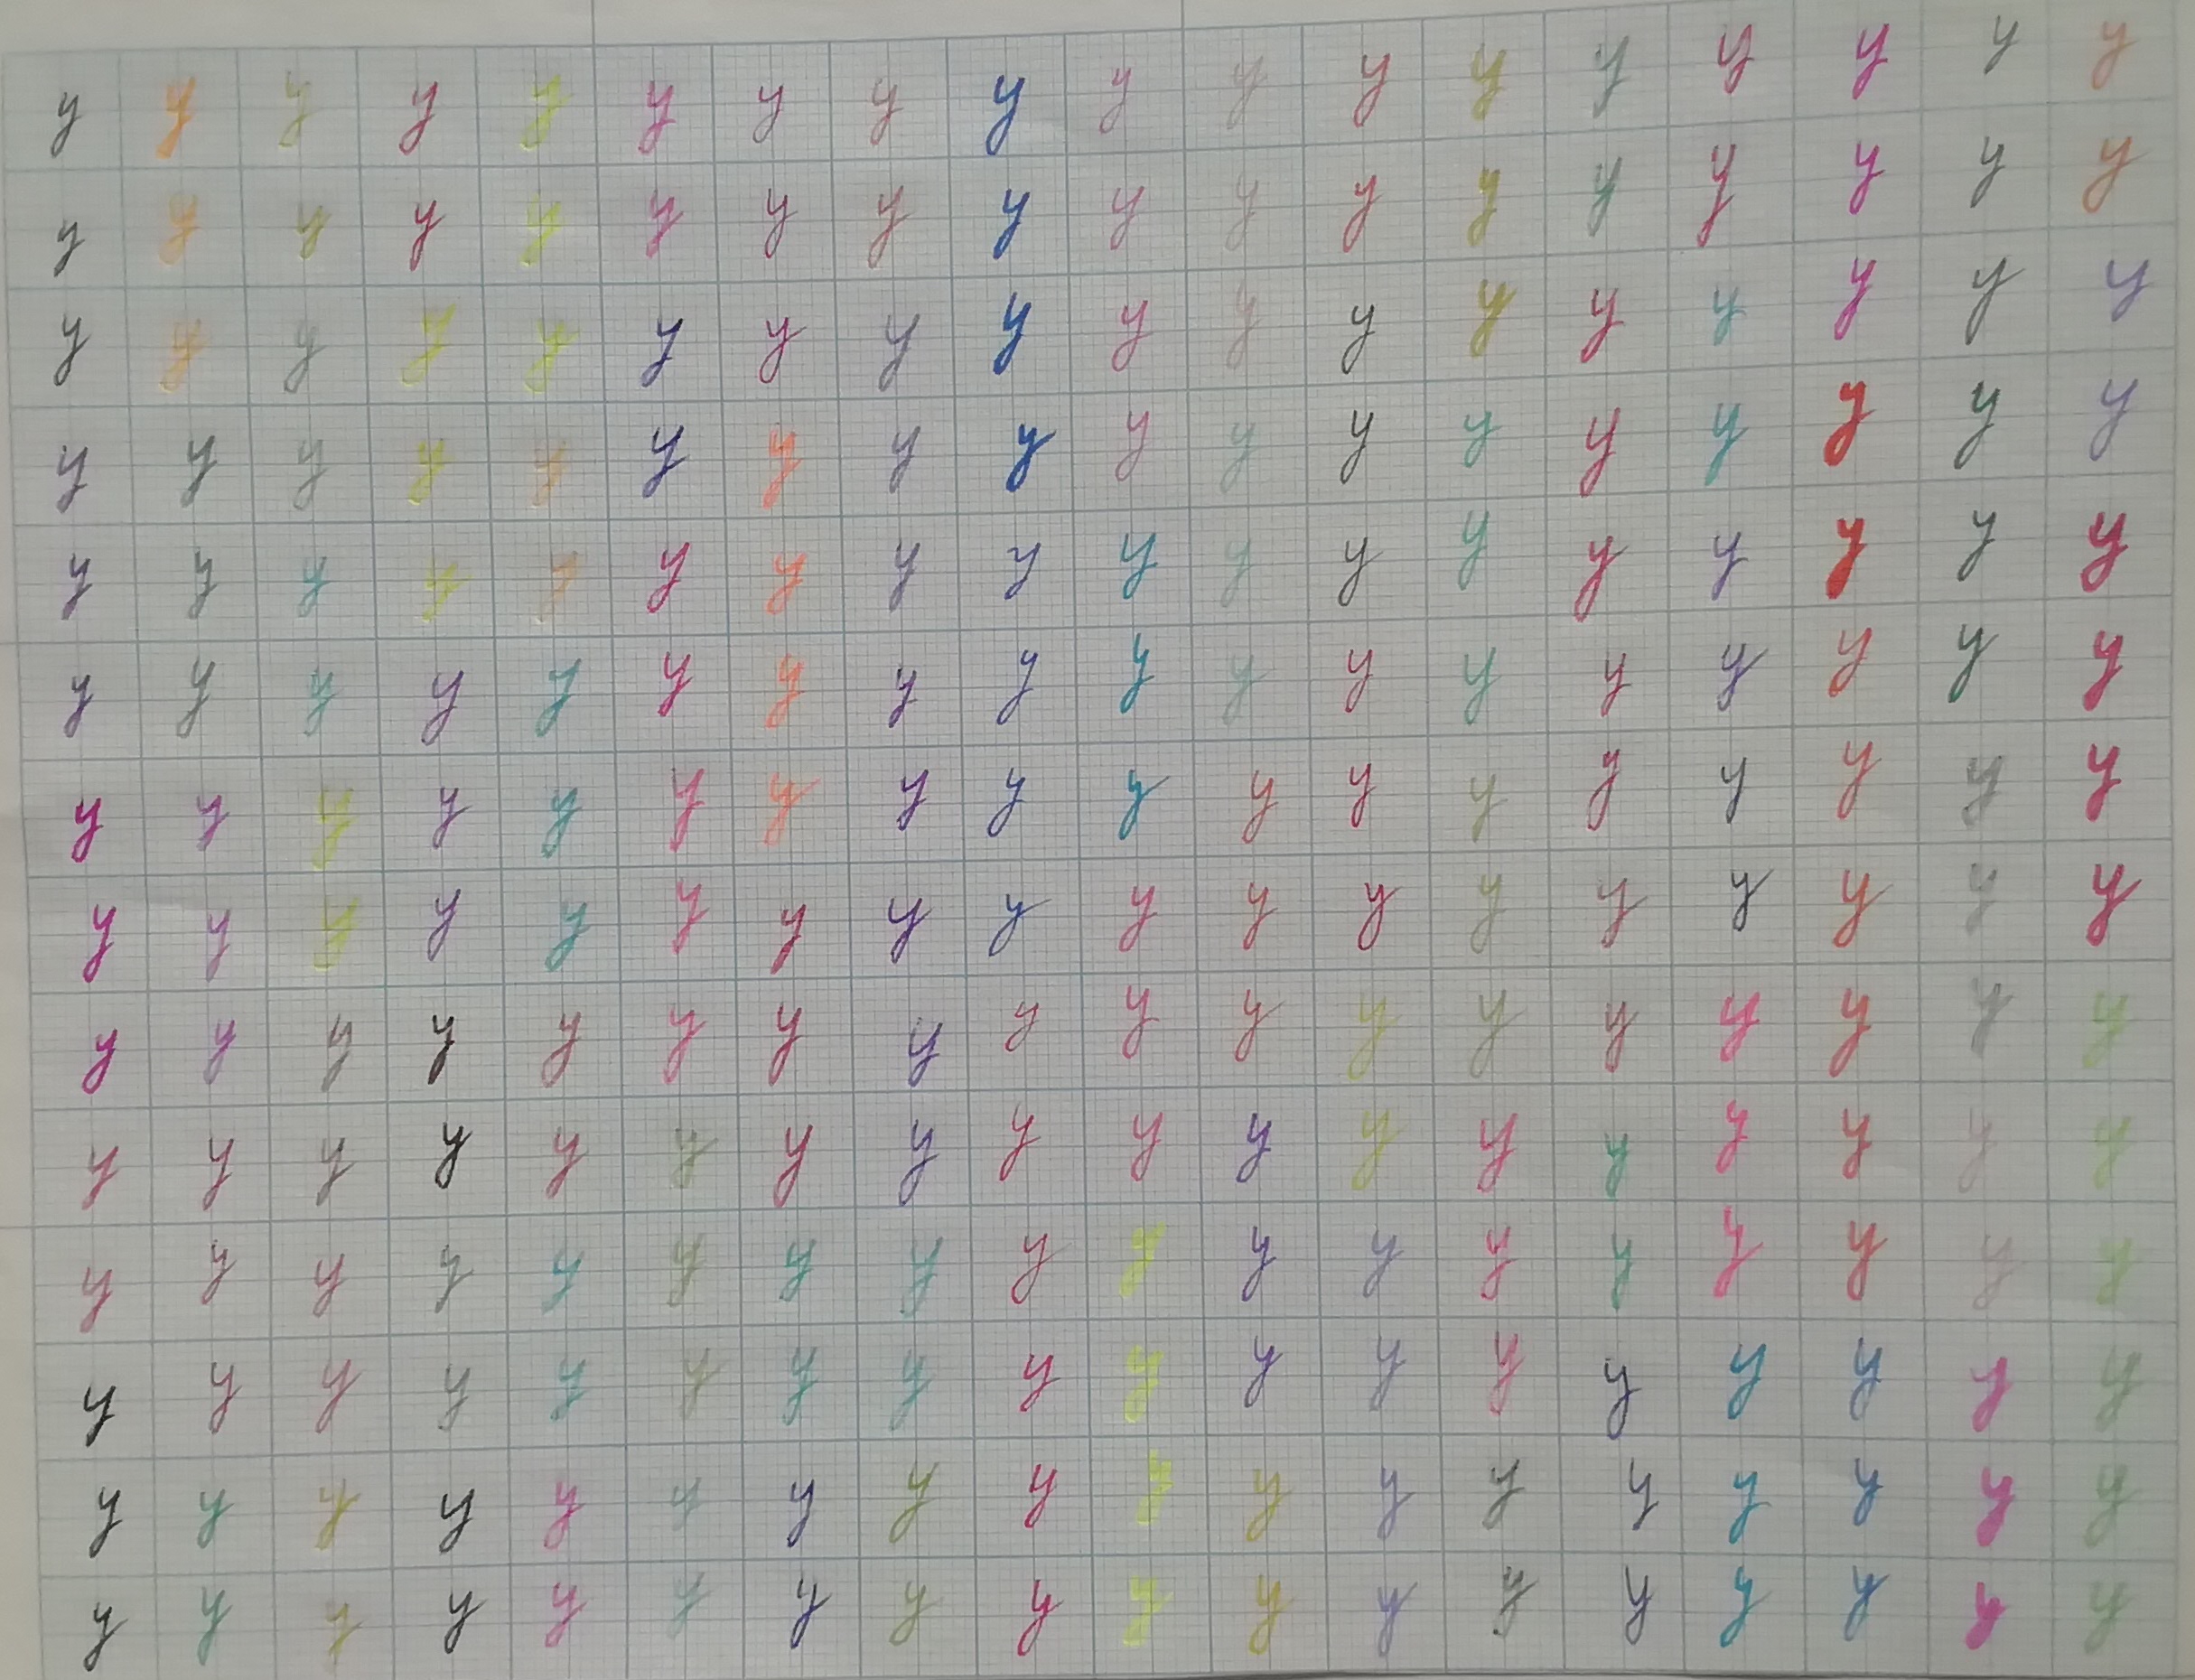 y y y y y y y y y y y y y y y y y y
y y y y y y y y y y y y y y y y y y
y y y y y y y y y y y y y y y y y y
y y y y y y y y y y y y y y y y y y
y y y y y y y y y y y y y y y y y y
y y y y y y y y y y y y y y y y y y
y y y y y y y y y y y y y y y y y y
y y y y y y y y y y y y y y y y y y
y y y y y y y y y y y y y y y y y y
y y y y y y y y y y y y y y y y y y
y y y y y y y y y y y y y y y y y y
y y y y y y y y y y y y y y y y y y
y y y y y y y y y y y y y y y y y y
y y y y y y y y y y y y y y y y y y